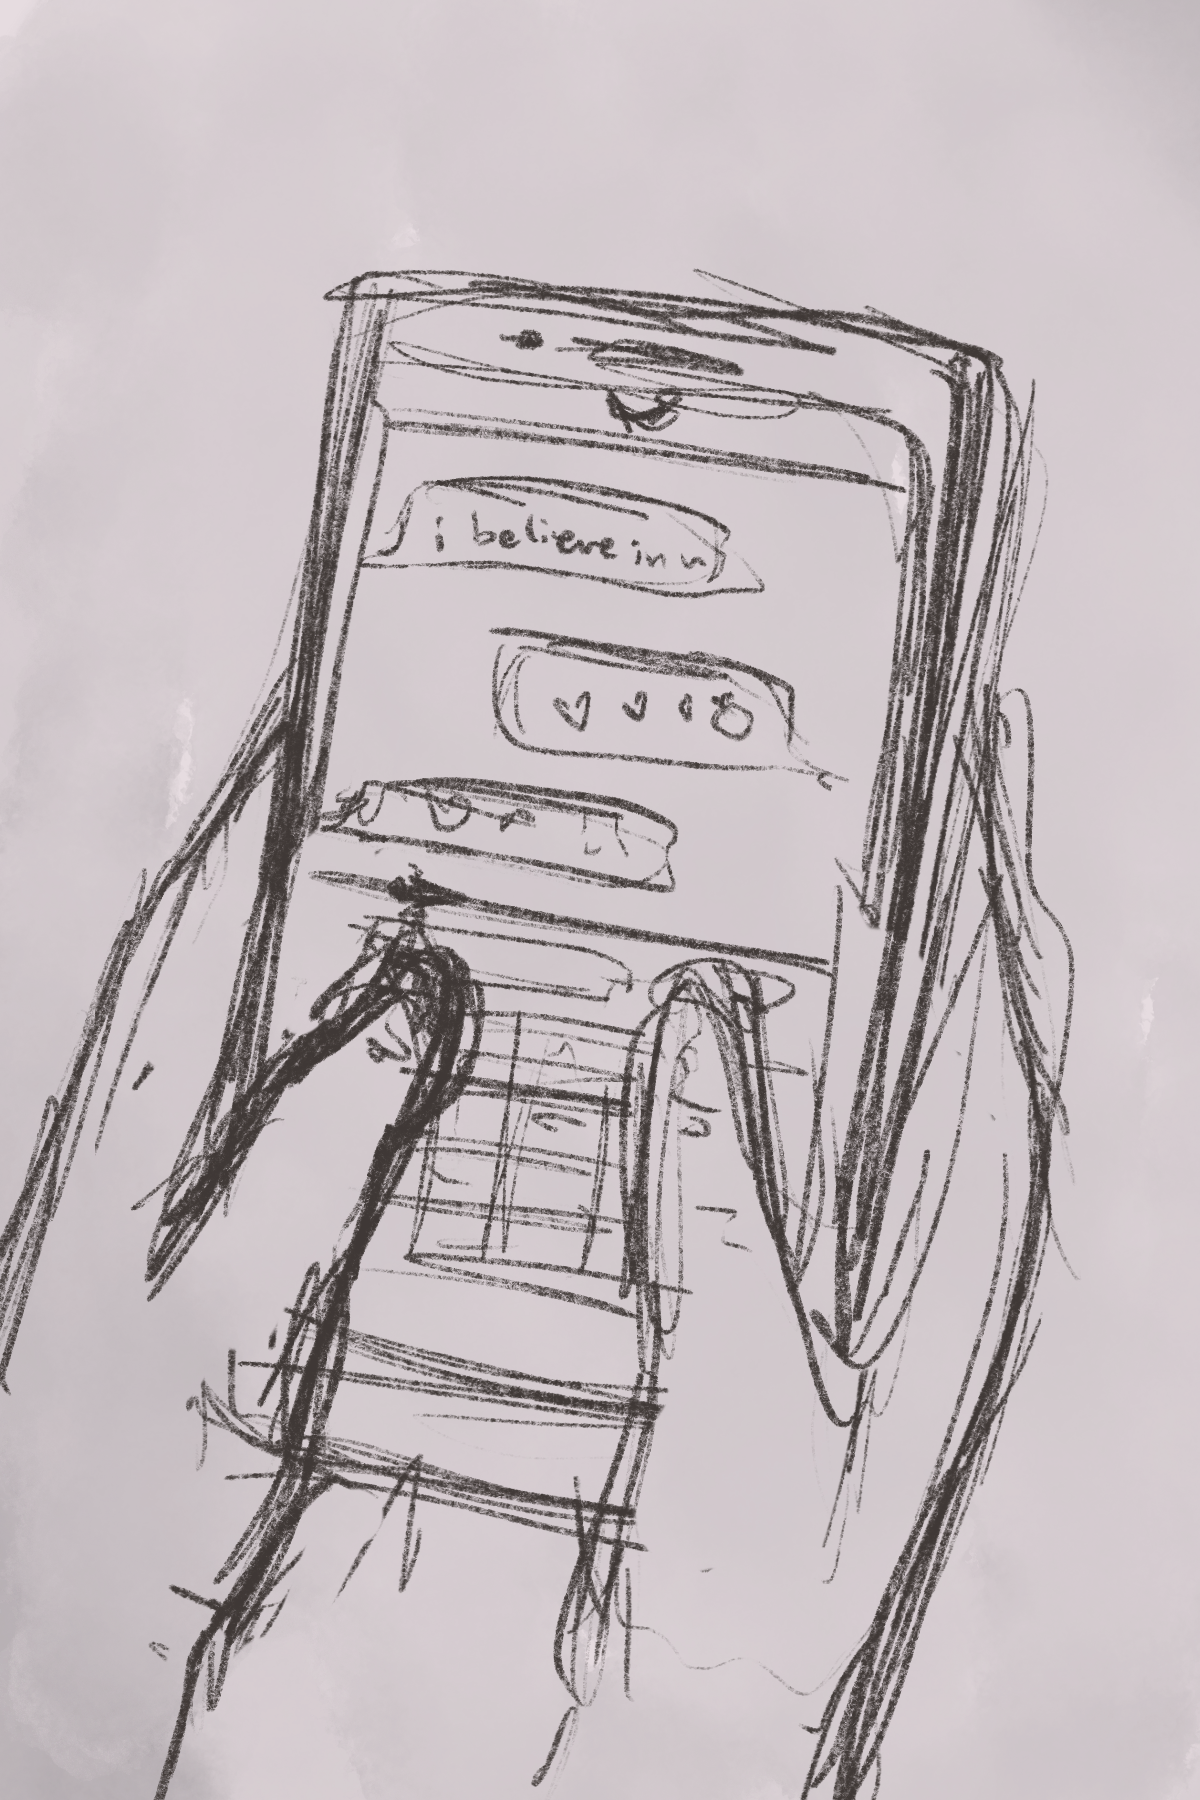 i believe in u